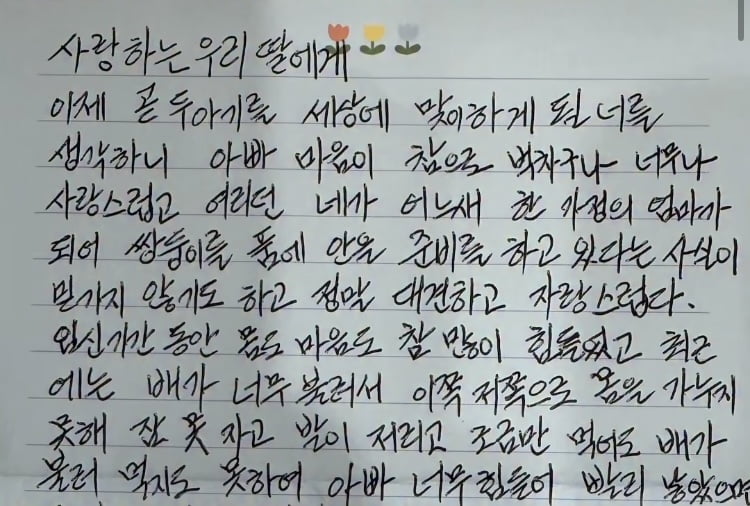 사랑하는 우리 딸에게
이제 곧 두아기를 세상에 맞이하게 될 너를
생각하니 아빠 마음이 참으로 벅차구나 너무나
사랑스럽고 여리던 네가 어느새 한 가정의 엄마가
되어 쌍둥이를 품에 안을 준비를 하고 있다는 사실이
믿기지 않기도 하고 정말 대견하고 자랑스럽다.
임신기간 동안 몸도 마음도 참 많이 힘들었고 최근
에는 배가 너무 불러서 이쪽 저쪽으로 몸을 가누지
못해 잠 못 자고 발이 저리고 조금만 먹어도 배가
불러 먹지도 못하여 아빠 너무 힘들어 빨리 낳았으면